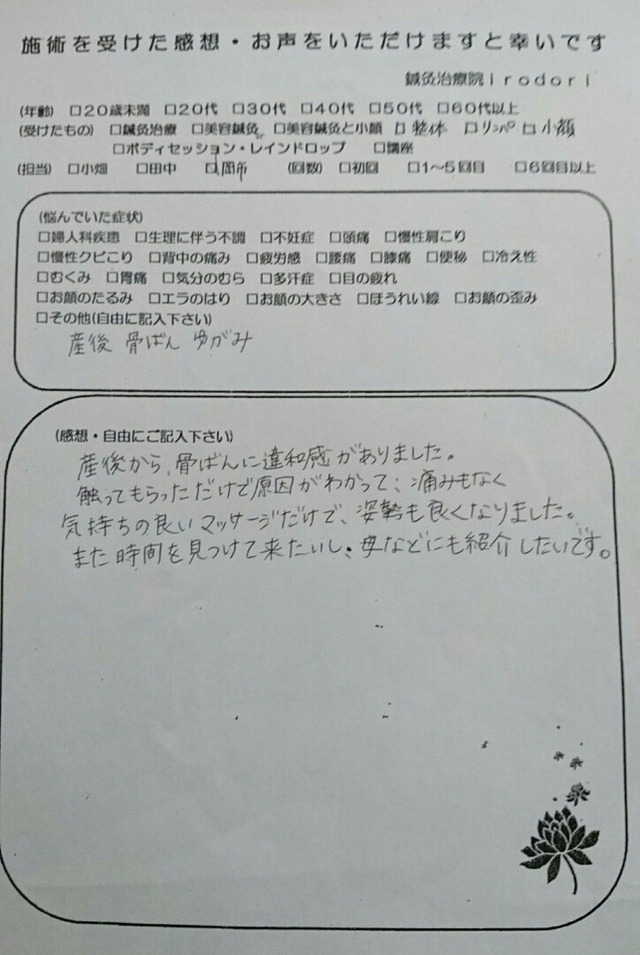 施術を受けた感想・お声をいただけますと幸いです
鍼灸治療院irodori
(年齢) □20歳未満 □20代 □30代 □40代 □50代 □60代以上
(受けたもの) □鍼灸治療 □美容鍼灸 □美容鍼灸と小顔 □整体 □リンパ □小顔
□ボディセッション・レインドロップ □講座
(担当) □小畑 □田中 □岡市 (回数) □初回 □1〜5回目 □6回目以上
(悩んでいた症状)
□婦人科疾患 □生理に伴う不調 □不妊症 □頭痛 □慢性肩こり
□慢性クビこり □背中の痛み □疲労感 □腰痛 □膝痛 □便秘 □冷え性
□むくみ □胃痛 □気分のむら □多汗症 □目の疲れ
□お顔のたるみ □エラのはり □お顔の大きさ □ほうれい線 □お顔の歪み
□その他(自由に記入下さい)
産後 骨ばん ゆがみ
(感想・自由にご記入下さい)
産後から、骨ばんに違和感がありました。
触ってもらっただけで原因がわかって、痛みもなく
気持ちの良いマッサージだけで、姿勢も良くなりました。
また時間を見つけて来たいし、母などにも紹介したいです。